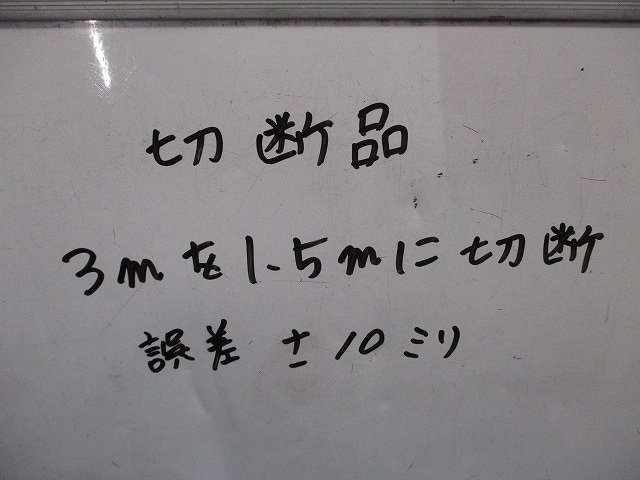 切断品
3mを1.5mに切断
誤差 ±10ミリ